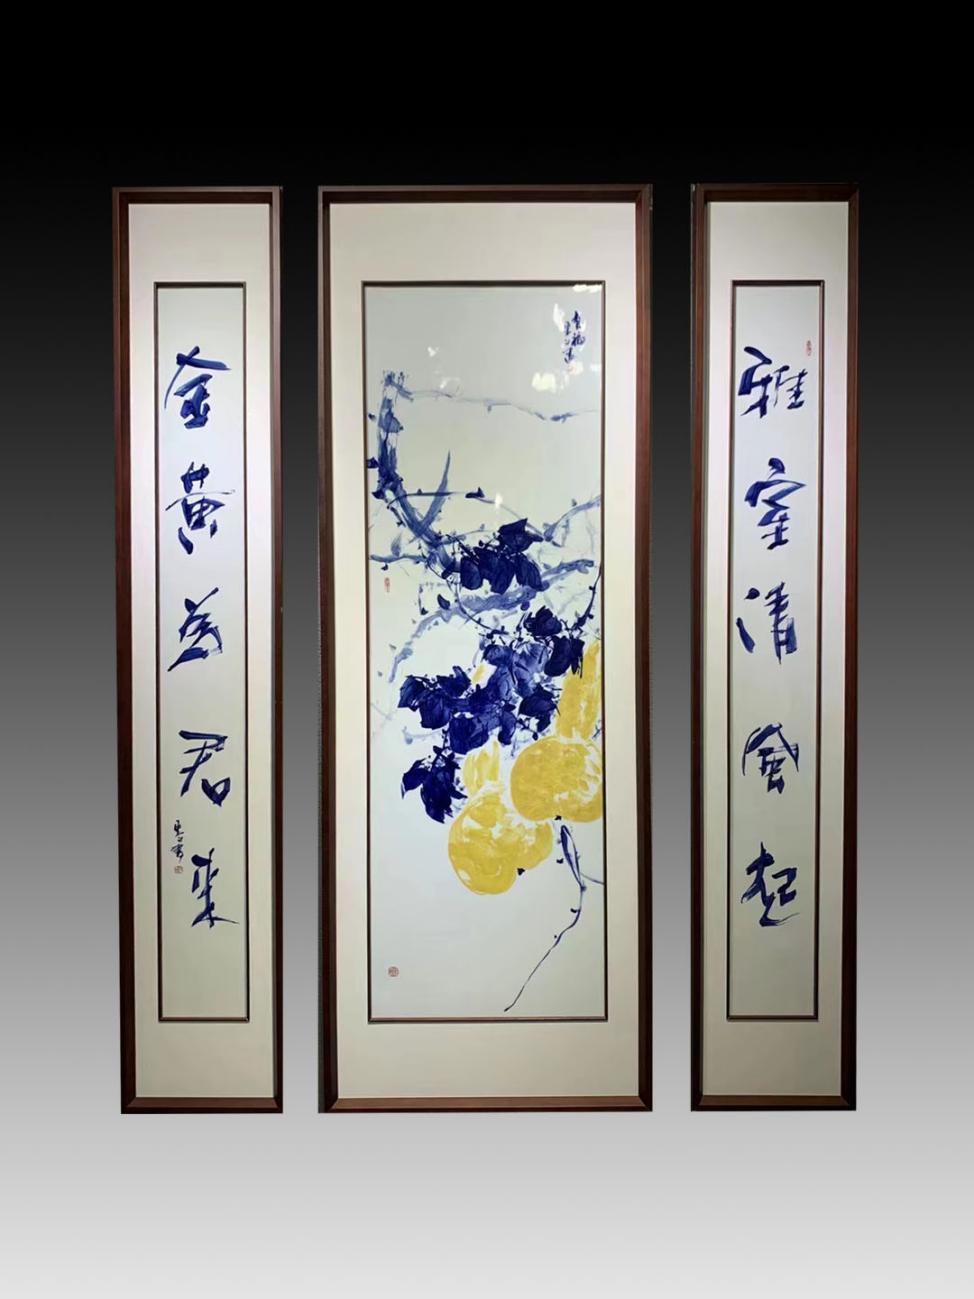 雅室清风起
金黄为君来